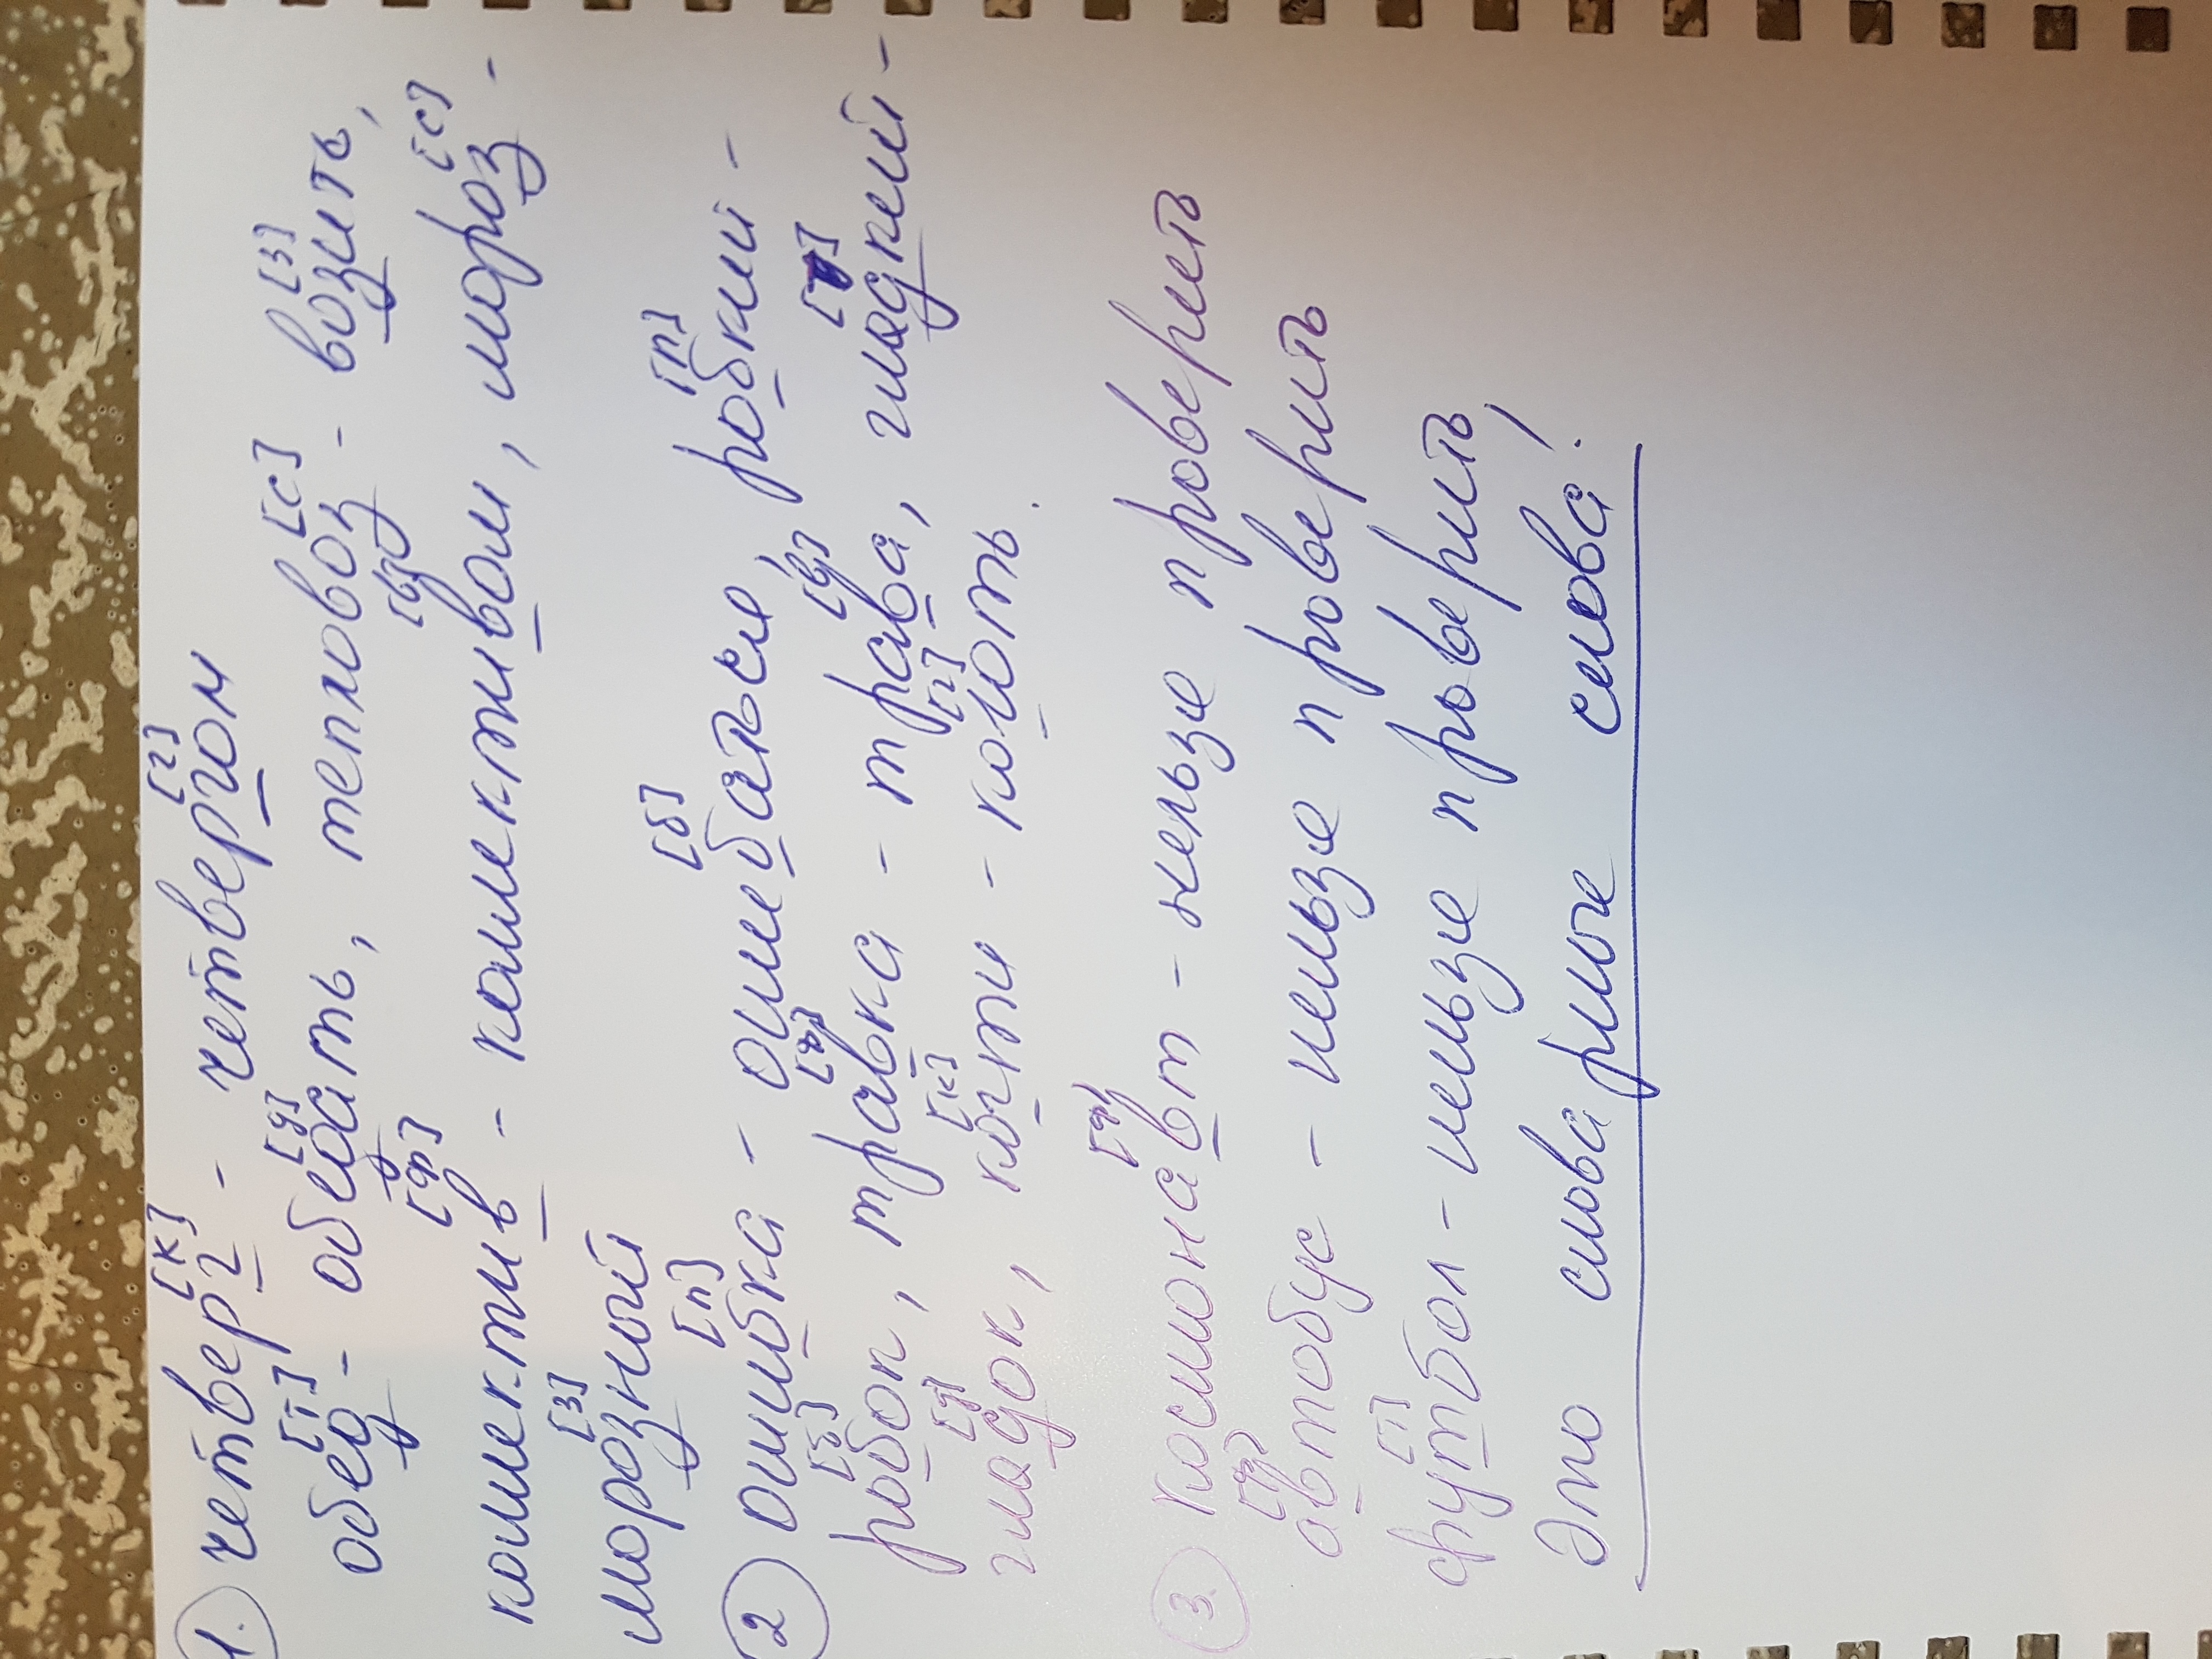 [к] [г]
1. четверг - четвергом
[т] [д] [с] [з]
обед - обедать, тепловоз - возить,
[ф] [в] [с]
коллектив - коллективом, мороз -
[з]
морозный
[п] [б] [п]
2 ошибка - ошибаться, робкий -
[б] [ф] [в] [т]
робок, травка - трава, гладкий -
[д] [к] [г]
гладок, когти - коготь.
[ф]
3. космонавт - нельзя проверить
[ф]
автобус - нельзя проверить
[т]
футбол - нельзя проверить,
Это словарные слова!